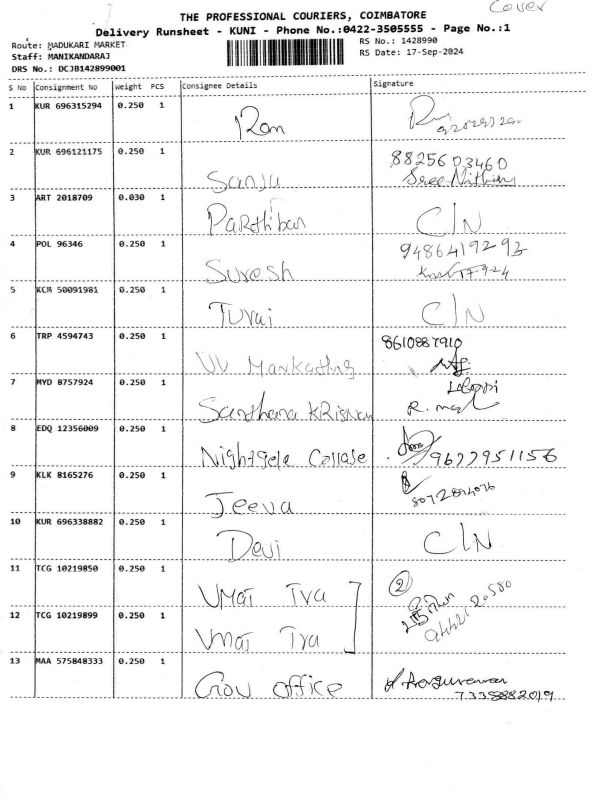 Cover
THE PROFESSIONAL COURIERS, COIMBATORE
Delivery Runsheet - KUNI - Phone No.:0422-3505555 - Page No.:1
Route: MADUKARI MARKET
Staff: MANIKANDARAJ
DRS No.: DCJB142899001
RS No.: 1428990
RS Date: 17-Sep-2024
S No Consignment No Weight PCS Consignee Details Signature
1 KUR 696315294 0.250 1 Ram
2 KUR 696121175 0.250 1 Sanju 8825603460
3 ART 2018709 0.030 1 Parthiban C/N
4 POL 96346 0.250 1 Suresh 9486419293
5 KCM 50091981 0.250 1 Tuvai C/N
6 TRP 4594743 0.250 1 VV 8610887910
7 MYD 8757924 0.250 1 Santhana KRisnan
8 EDQ 12356009 0.250 1 Nightgele Collase 9677951156
9 KLK 8165276 0.250 1 Jeeva
10 KUR 696338882 0.250 1 Devi C/N
11 TCG 10219850 0.250 1 UMai Tva 2
12 TCG 10219899 0.250 1 Umai Tva
13 MAA 575848333 0.250 1 Gov office 7335882019